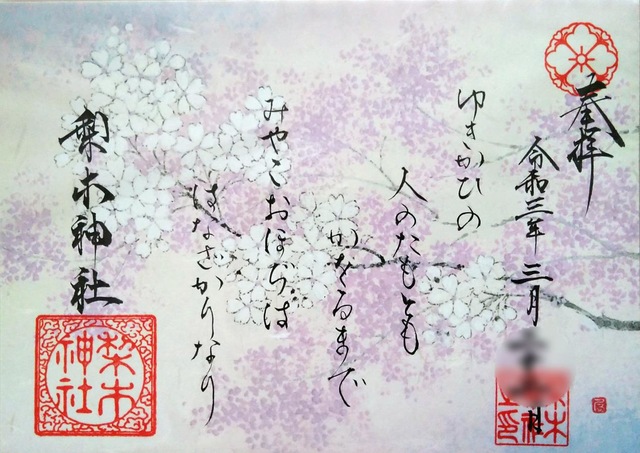 奉拝
令和三年三月
ゆきかひの
人のたもとも
かをるまで
みやこおほぢは
はなざかりなり
梨木神社
梨木神社